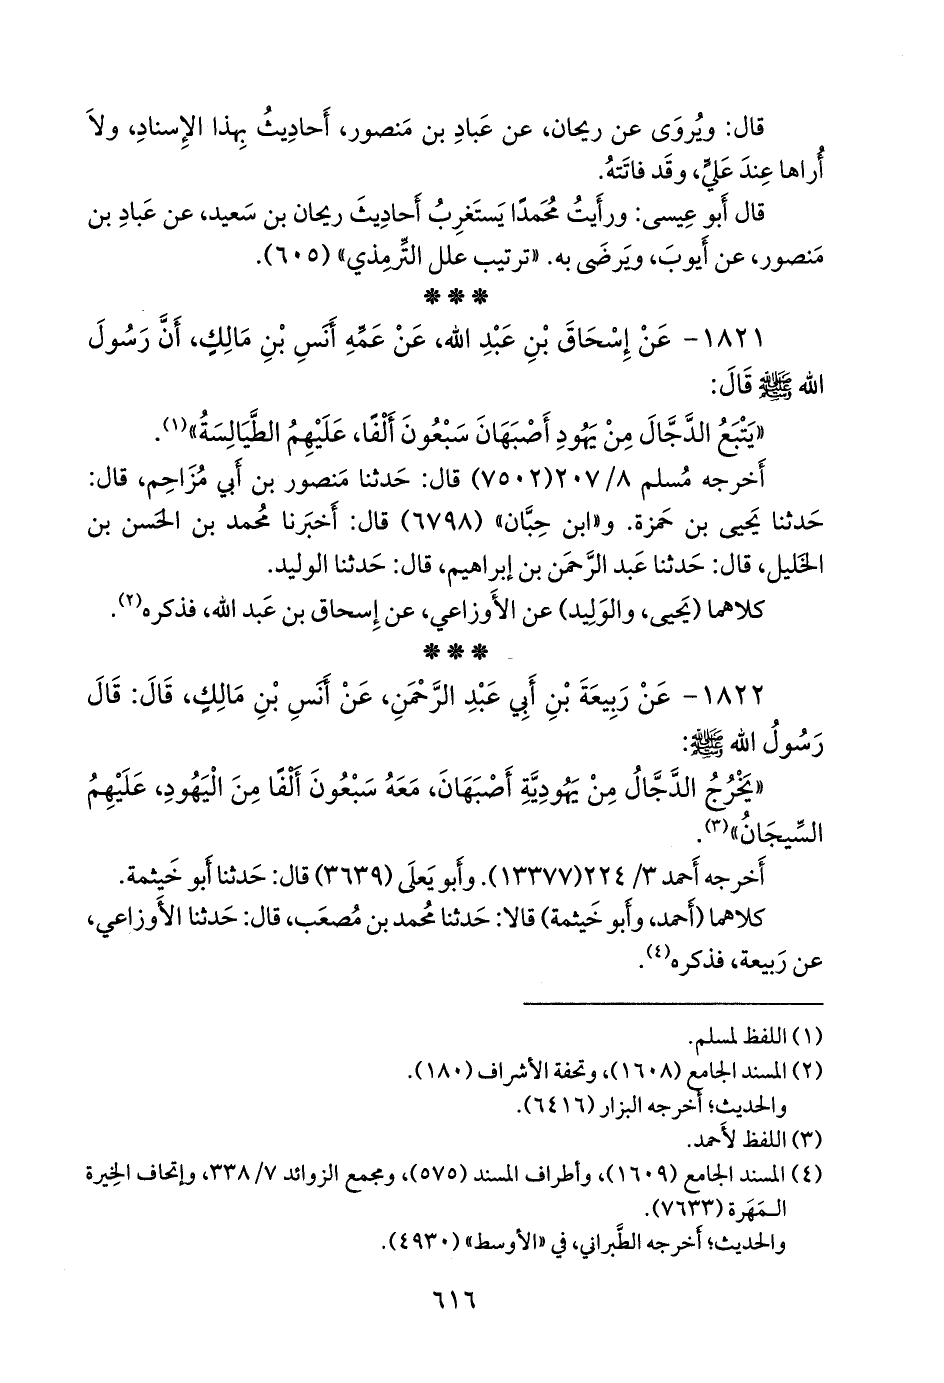 قال: ويُروَى عن ريحان، عن عَبادِ بن مَنصور، أَحاديثُ بِهذا الإِسنادِ، ولاَ
أُراها عِندَ عَليٍّ، وقَد فاتَتهُ.
قال أَبو عِيسى: ورأَيتُ مُحَمدًا يَستَغرِبُ أَحاديثَ ريحان بن سَعيد، عن عَبادِ بن
مَنصور، عن أَيوبَ، ويَرضَى به. «ترتيب علل التِّرمِذي» (٦٠٥).
* * *
١٨٢١- عَنْ إِسْحَاقَ بْنِ عَبْدِ الله، عَنْ عَمِّهِ أَنَسِ بْنِ مَالِكٍ، أَنَّ رَسُولَ
الله ﷺ قَالَ:
«يَتْبَعُ الدَّجَّالَ مِنْ يَهُودِ أَصْبَهَانَ سَبْعُونَ أَلْفًا، عَلَيْهِمُ الطَّيَالِسَةُ»(١).
أَخرجه مُسلم ٨/ ٢٠٧(٧٥٠٢) قال: حَدثنا مَنصور بن أَبي مُزَاحِم، قال:
حَدثنا يَحيى بن حَمزة. و«ابن حِبَّان» (٦٧٩٨) قال: أَخبَرنا مُحمد بن الحَسن بن
الخَليل، قال: حَدثنا عَبد الرَّحمَن بن إِبراهيم، قال: حَدثنا الوليد.
كلاهما (يَحيى، والوَلِيد) عن الأَوزاعي، عن إِسحاق بن عَبد الله، فذكره(٢).
* * *
١٨٢٢- عَنْ رَبِيعَةَ بْنِ أَبِي عَبْدِ الرَّحْمَنِ، عَنْ أَنَسِ بْنِ مَالِكٍ، قَالَ: قَالَ
رَسُولُ الله ﷺ:
«يَخْرُجُ الدَّجَّالُ مِنْ يَهُودِيَّةِ أَصْبَهَانَ، مَعَهُ سَبْعُونَ أَلْفًا مِنَ الْيَهُودِ، عَلَيْهِمُ
السِّيجَانُ»(٣).
أَخرجه أَحمد ٣/ ٢٢٤(١٣٣٧٧). وأَبو يَعلَى (٣٦٣٩) قال: حَدثنا أَبو خَيثمة.
كلاهما (أَحمد، وأَبو خَيثمة) قالا: حَدثنا مُحمد بن مُصعَب، قال: حَدثنا الأَوزاعي،
عن رَبيعة، فذكره(٤).
(١) اللفظ لمسلم.
(٢) المسند الجامع (١٦٠٨)، وتحفة الأشراف (١٨٠).
والحديث؛ أَخرجه البزار (٦٤١٦).
(٣) اللفظ لأَحمد.
(٤) المسند الجامع (١٦٠٩)، وأطراف المسند (٥٧٥)، ومجمع الزوائد ٧/ ٣٣٨، وإتحاف الخِيرة
المَهَرة (٧٦٣٣).
والحديث؛ أَخرجه الطَّبراني، في «الأوسط» (٤٩٣٠).
٦١٦